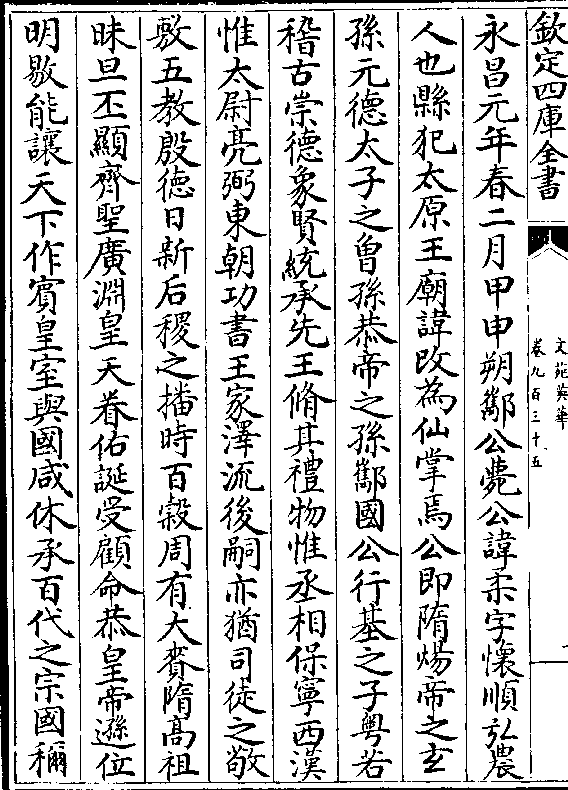 欽定四庫全書
文苑英華
卷九百三十五
永昌元年春二月甲申朔酅公薨公諱柔字懷順弘農
人也縣犯太原王廟諱改為仙掌焉公即隋煬帝之玄
孫元德太子之曾孫恭帝之孫酅國公行基之子粤若
稽古崇德象賢統承先王脩其禮物惟丞相保寧西漢
惟太尉亮弼東朝功書王家澤流後嗣亦猶司徒之敬
敷五教殷德日新后稷之播時百榖周有大賚隋高祖
昧旦丕顯齊聖廣淵皇天眷佑誕受顧命恭皇帝遜位
明敭能讓天下作賓皇室與國咸休承百代之宗國稱